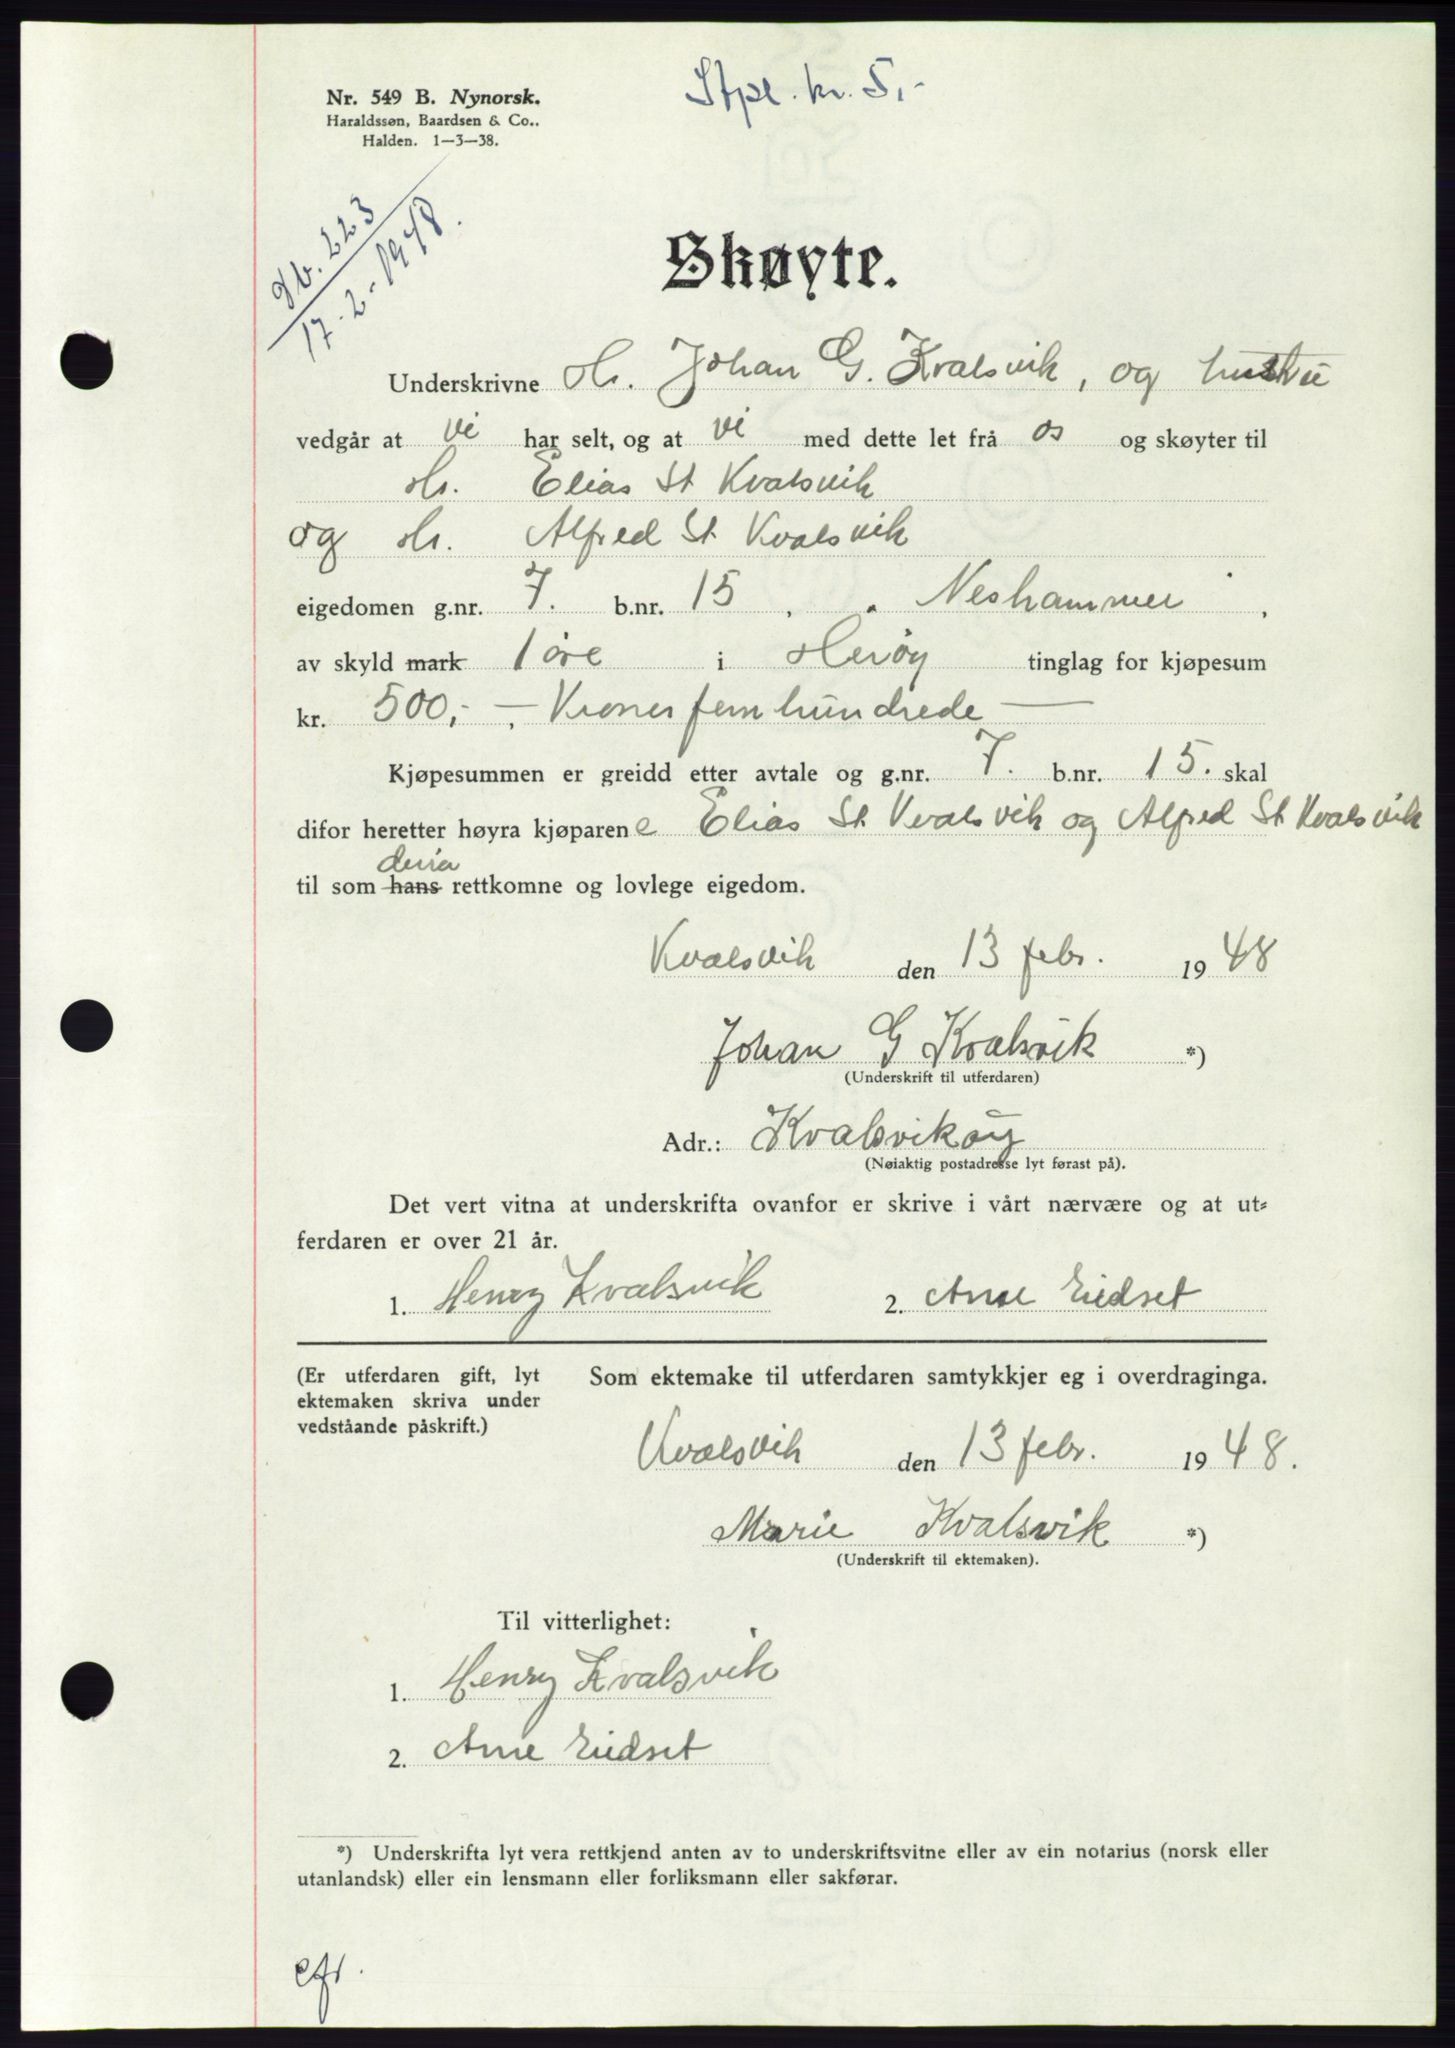 Stpl. kr. 5,-
Nr. 549 B. Nynorsk.
Haraldssøn, Baardsen & Co..
Halden. 1—3—38.
Db. 223
17-2-1948.
Skøyte.
Underskrivne Hr. Johan G. Kvalsvik, og hustru
vedgår at vi har selt, og at vi med dette let frå os og skøyter til
Hr. Elias St Kvalsvik
og Hr. Alfred St Kvalsvik
eigedomen g.nr. 7. b.nr. 15, „ Neshammer,
av skyld mark 1 øre i Herøy tinglag for kjøpesum
kr. 500,- – . Kroner fem hundrede —
Kjøpesummen er greidd etter avtale og g.nr. 7. b.nr. 15. skal
difor heretter høyra kjøparene Elias St Kvalsvik og Alfred St Kvalsvik
deira
til som hans rettkomne og lovlege eigedom.
Kvalsvik den 13 febr. 1948
Johan G Kvalsvik *)
(Underskrift til utferdaren)
Adr.: Kvalsvikøy
(Nøiaktig postadresse lyt førast på).
Det vert vitna at underskrifta ovanfor er skrive i vårt nærvære og at ut=
ferdaren er over 21 år.
1. Henry Kvalsvik 2. Arne Eidset
(Er utferdaren gift, lyt
ektemaken skriva under
vedståande påskrift.)
Som ektemake til utferdaren samtykkjer eg i overdraginga.
Kvalsvik den 13 febr. 1948.
Marie Kvalsvik *)
(Underskrift til ektemaken).
Til vitterlighet:
1. Henry Kvalsvik
2. Arne Eidset
*) Underskrifta lyt vera rettkjend anten av to underskriftsvitne eller av ein notarius (norsk eller
utanlandsk) eller ein lensmann eller forliksmann eller sakførar.